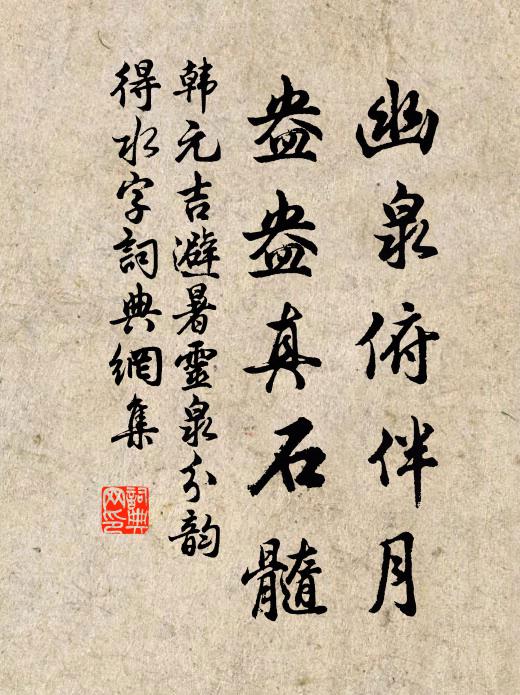 幽泉俯伴月
盎盎真石髓
韩元吉避暑靈泉分韵
得水字詞典網集
詞典
网印